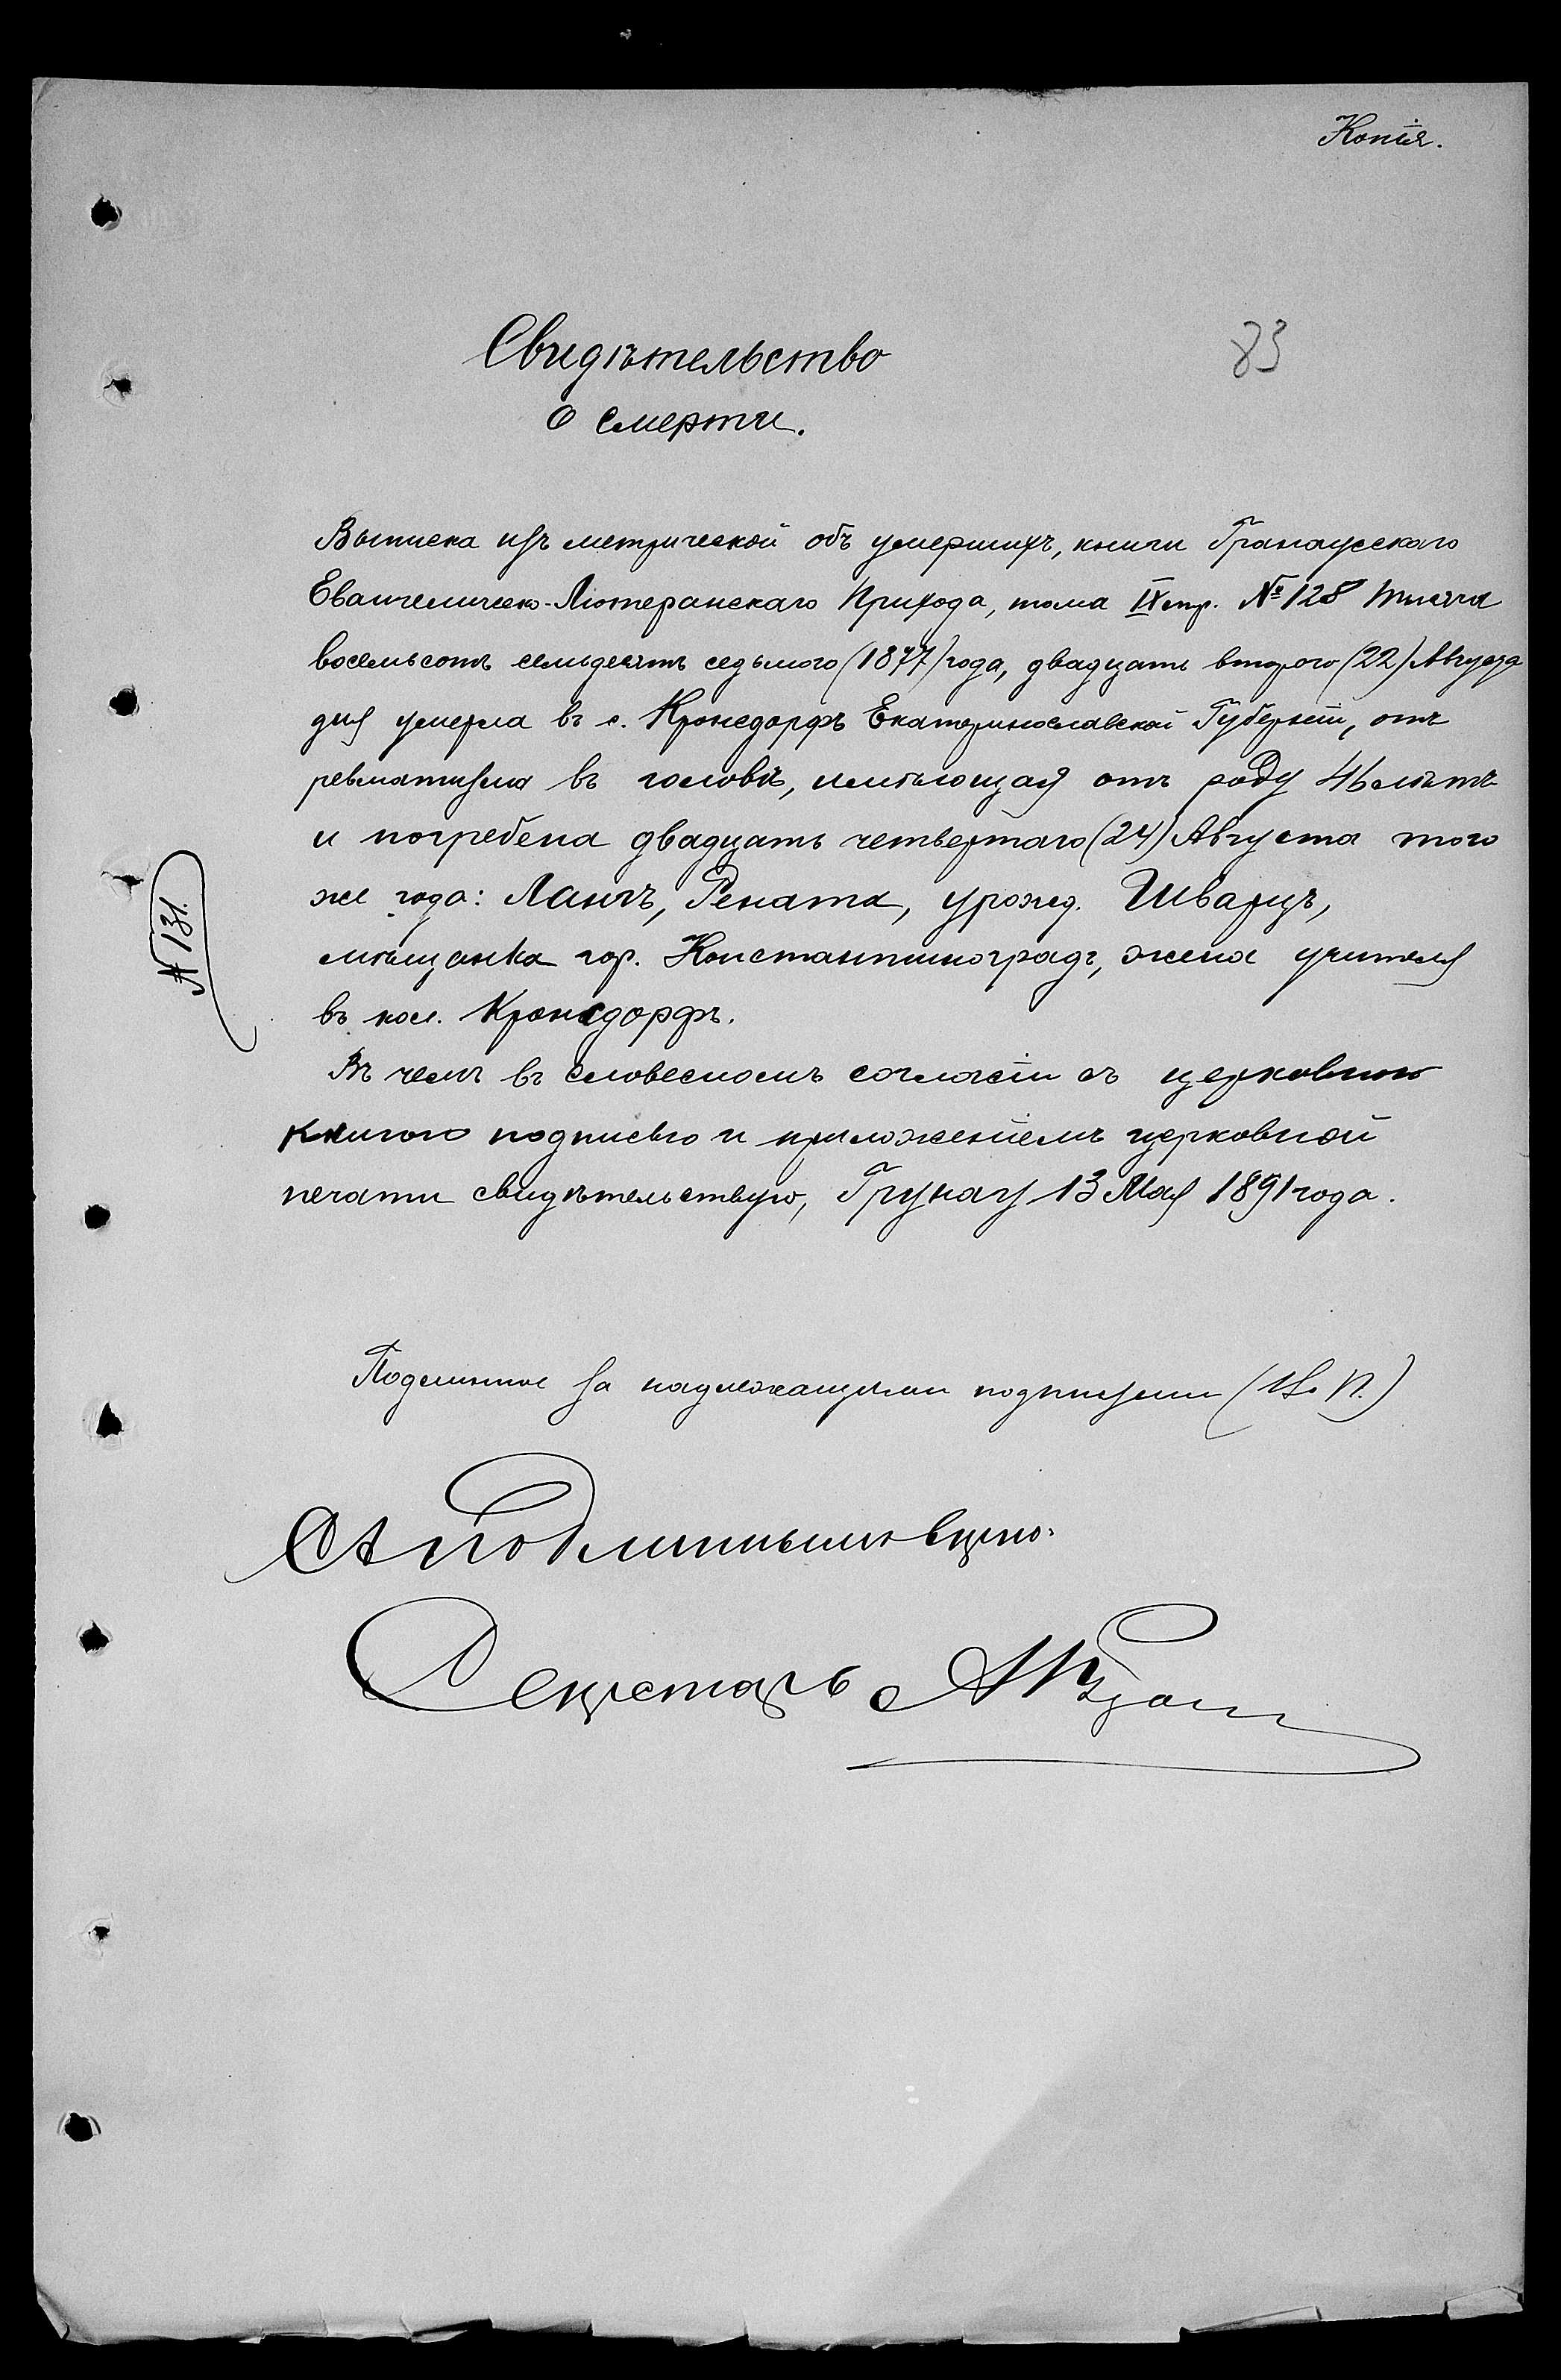 Копія.
83
Свидѣтельство
о смерти.
Выписка изъ метрической объ умершихъ, книги Гранаусскаго
Евангелическо-Лютеранскаго Прихода, тома IX стр. № 128 тысяча
восемьсотъ семьдесятъ седьмого (1877) года, двадцать второго (22) Августа
дня умерла въ с. Кронсдорфъ Екатеринославской Губерніи, отъ
ревматизма въ головѣ, имѣющая отъ роду 46 лѣтъ
и погребена двадцать четвертаго (24) Августа того
же года: Лангъ, Рената, урожд. Шварцъ,
мѣщанка гор. Константиноградъ, жена учителя
въ кол. Кронсдорфъ.
№ 131.
Въ чемъ въ словесномъ согласіи съ церковною
книгою подписью и приложеніемъ церковной
печати свидѣтельствую, Грунау 13 Мая 1891 года.
Подлинное за надлежащими подписями (Ц. П.)
Съ подлиннымъ вѣрно:
Секретарь А